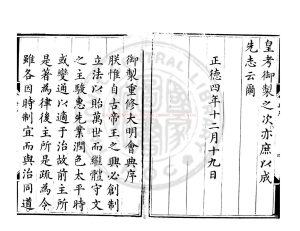 皇考御製之次亦庶以成
先志云爾
正德四年十二月十九日
御製重修大明會典序
朕惟自古帝王之興必創制
立法以貽萬世而繼體守文
之主駿惠先業潤色太平時
或變通以適于治故前主所
是著為律後主所是疏為令
雖各因時制宜而與治同道